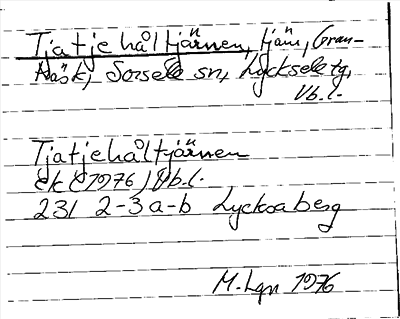 Tjatjehåltjärnen, tjärn, Gran-
träsk, Sorsele sn, Lycksele tg,
Vb.l.
Tjatjehåltjärnen
ek (1976) Vb.l.
231 2-3 a-b Lycksaberg
M. Lgn 1976